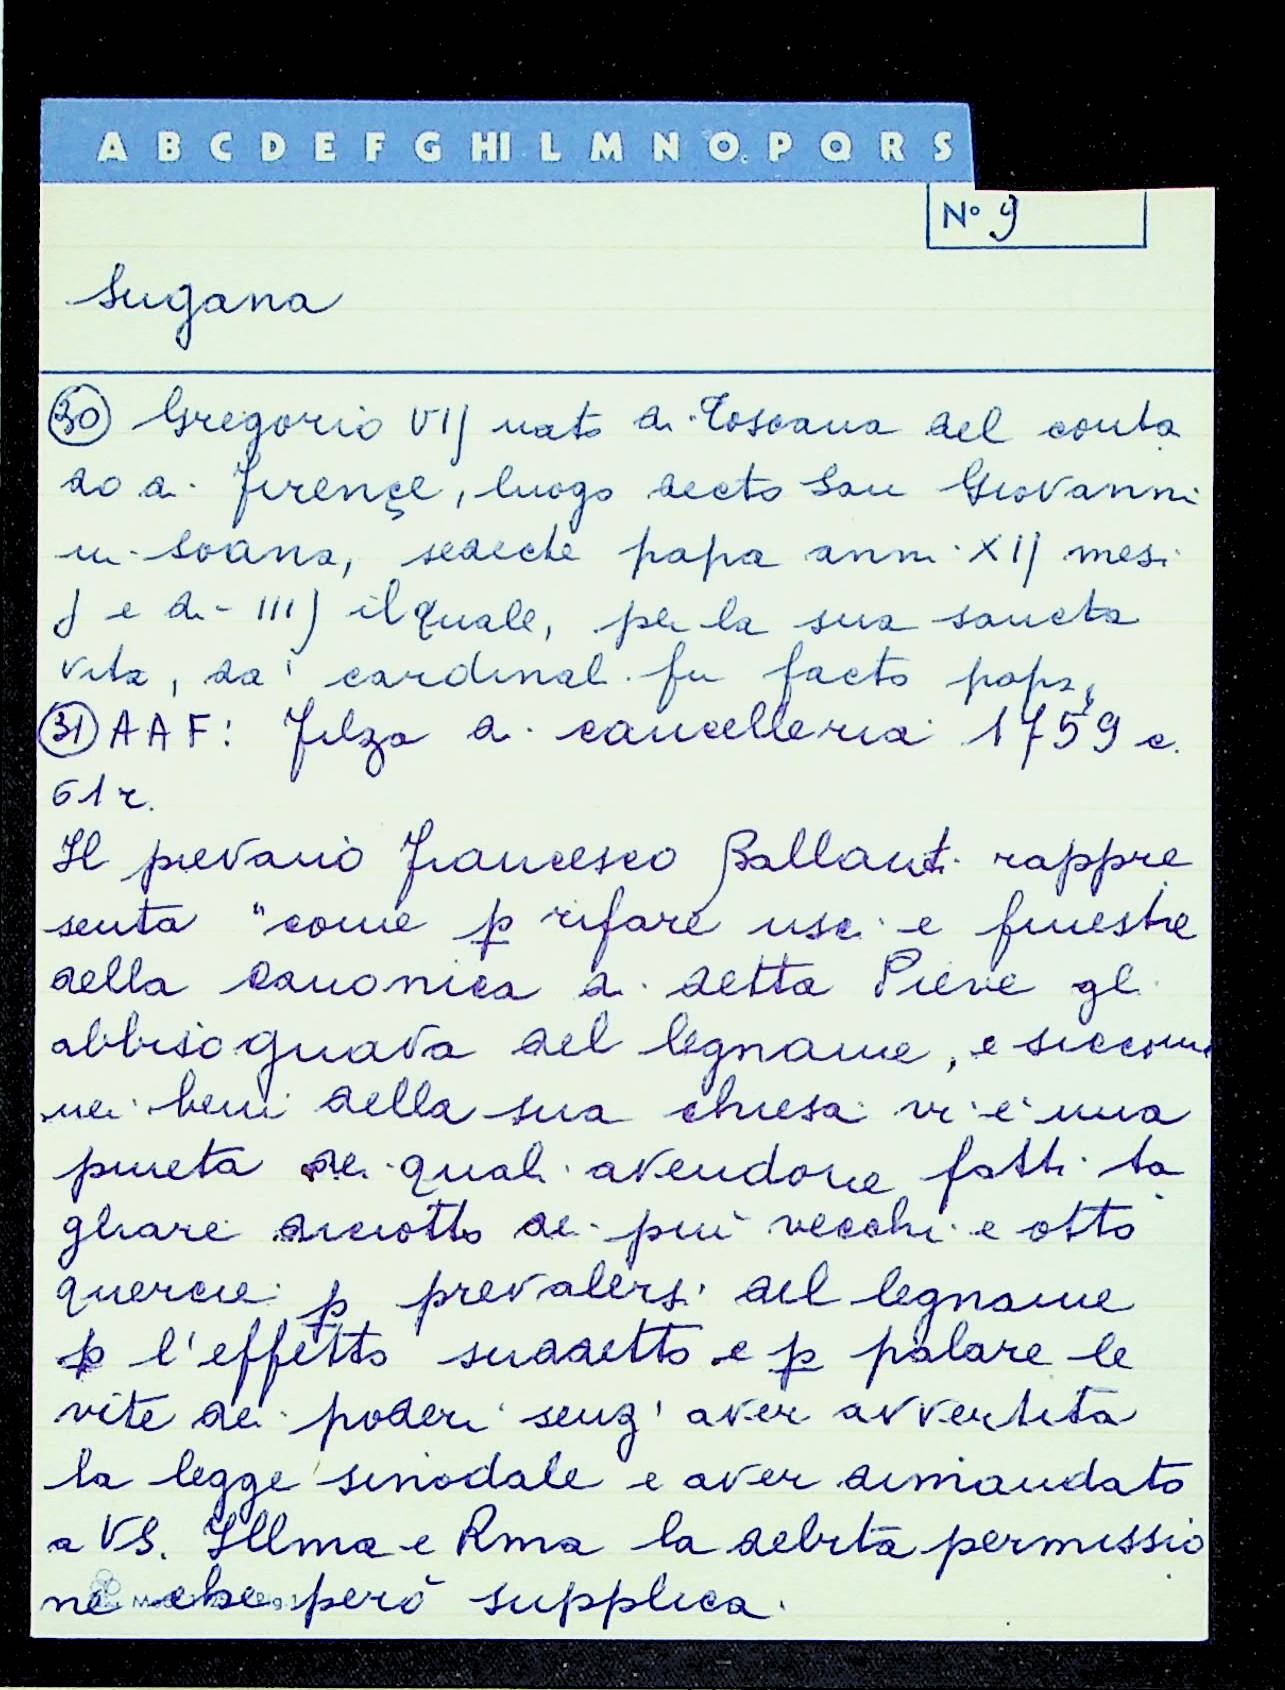 A B C D E F G HI L M N O P Q R S
N° 9
Sugana
30 Gregorio VIJ nato di Toscana del conta
do di Firençe, luogo decto San Giovanni
in Soana, sedecte papa anni XIJ mesi
J e di IIIJ il quale, per la sua sancta
vita, da' cardinali fu facto papa,
31 AAF: Filza di cancelleria 1759 c.
61r.
Il pievano Francesco Ballanti rappre
senta "come p rifare usci e finestre
della canonica di detta Pieve gli
abbisognava del legname, e siccome
nei beni della sua chiesa vi è una
pineta de quali avendone fatti ta
gliare diciotto dei più vecchi e otto
quercie p prevalersi del legname
p l'effetto suddetto e p palare le
vite dei poderi senz' aver avvertita
la legge sinodale e aver dimandato
a VS. Illma e Rma la debita permissio
ne che però supplica.